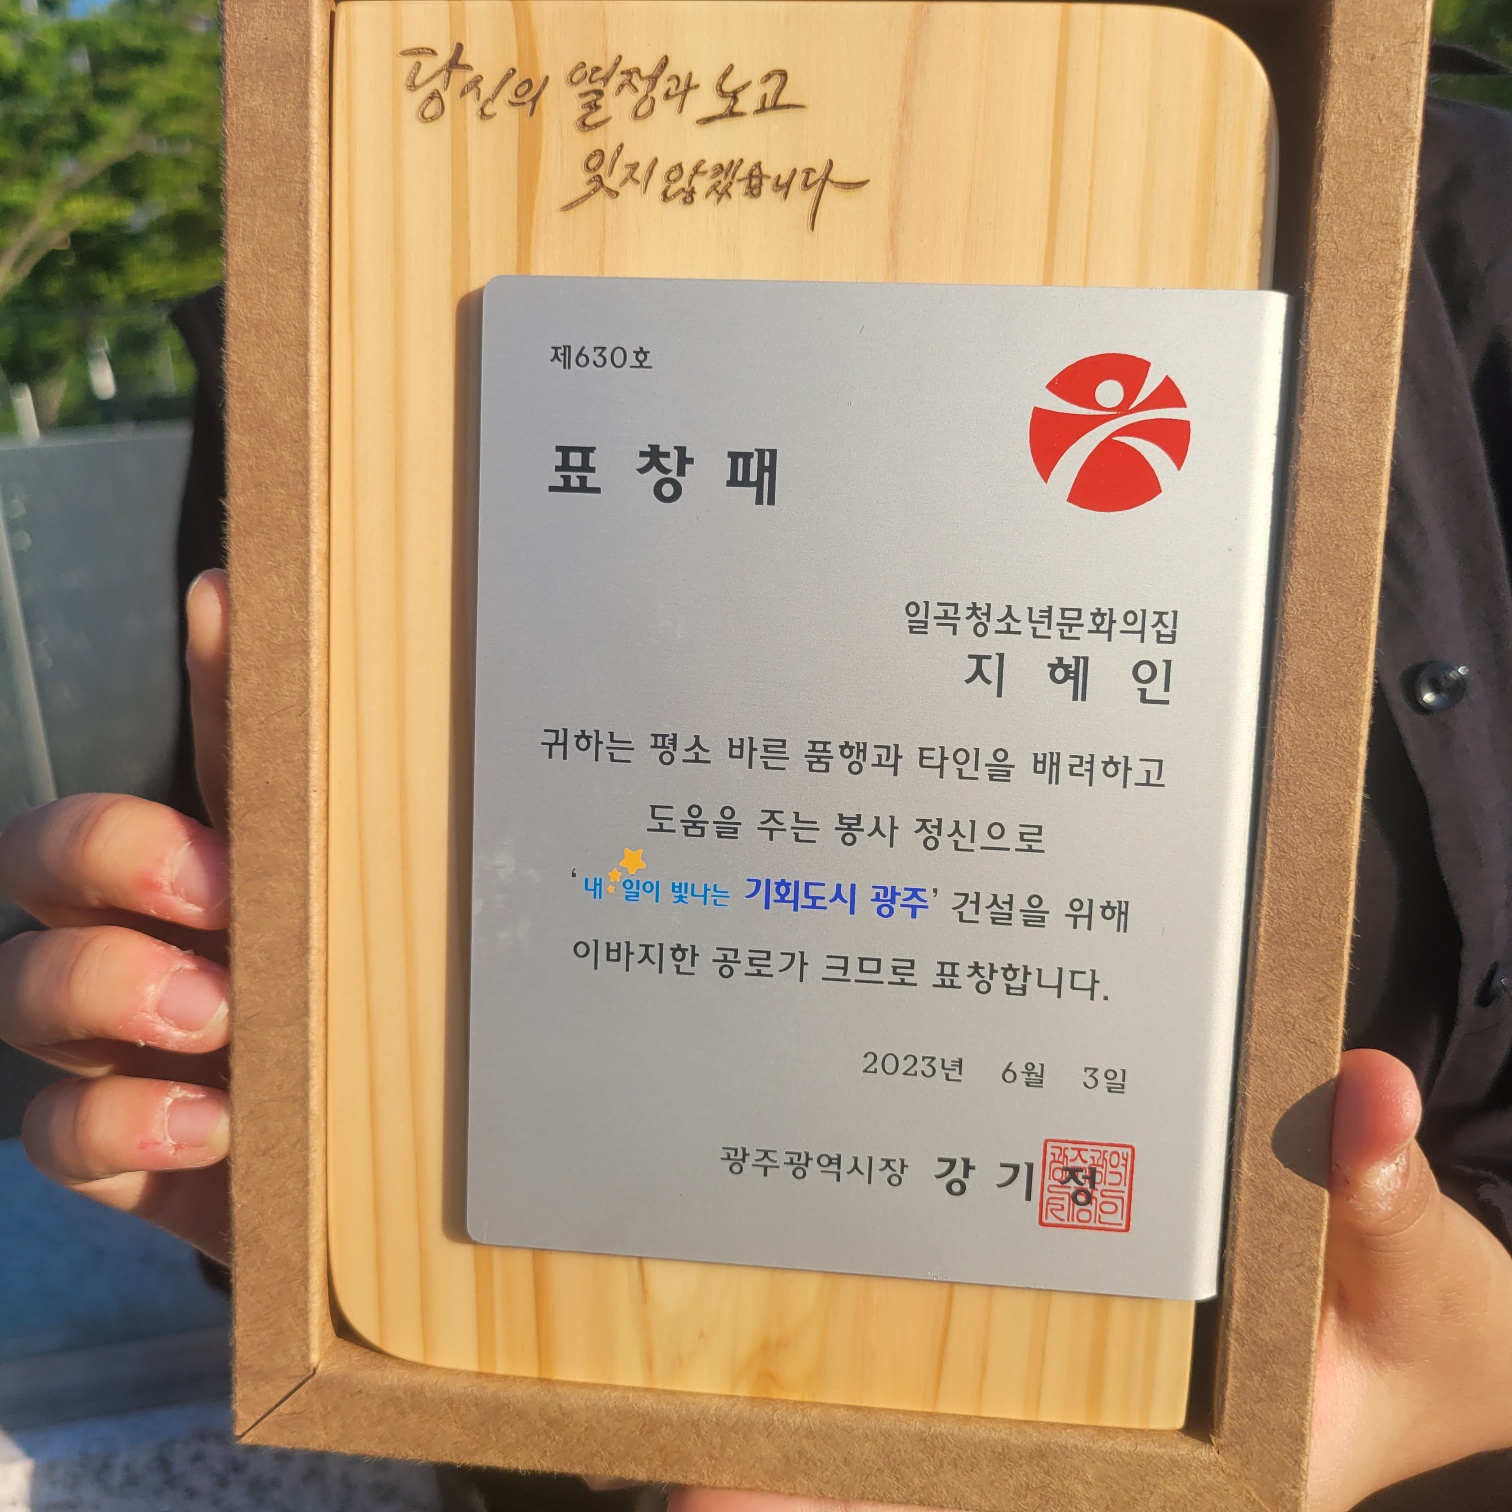 당신의 열정과 노고
잊지 않겠습니다
제630호
표 창 패
일곡청소년문화의집
지 혜 인
귀하는 평소 바른 품행과 타인을 배려하고
도움을 주는 봉사 정신으로
‘내☆일이 빛나는 기회도시 광주’ 건설을 위해
이바지한 공로가 크므로 표창합니다.
2023년 6월 3일
광주광역시장 강 기 정